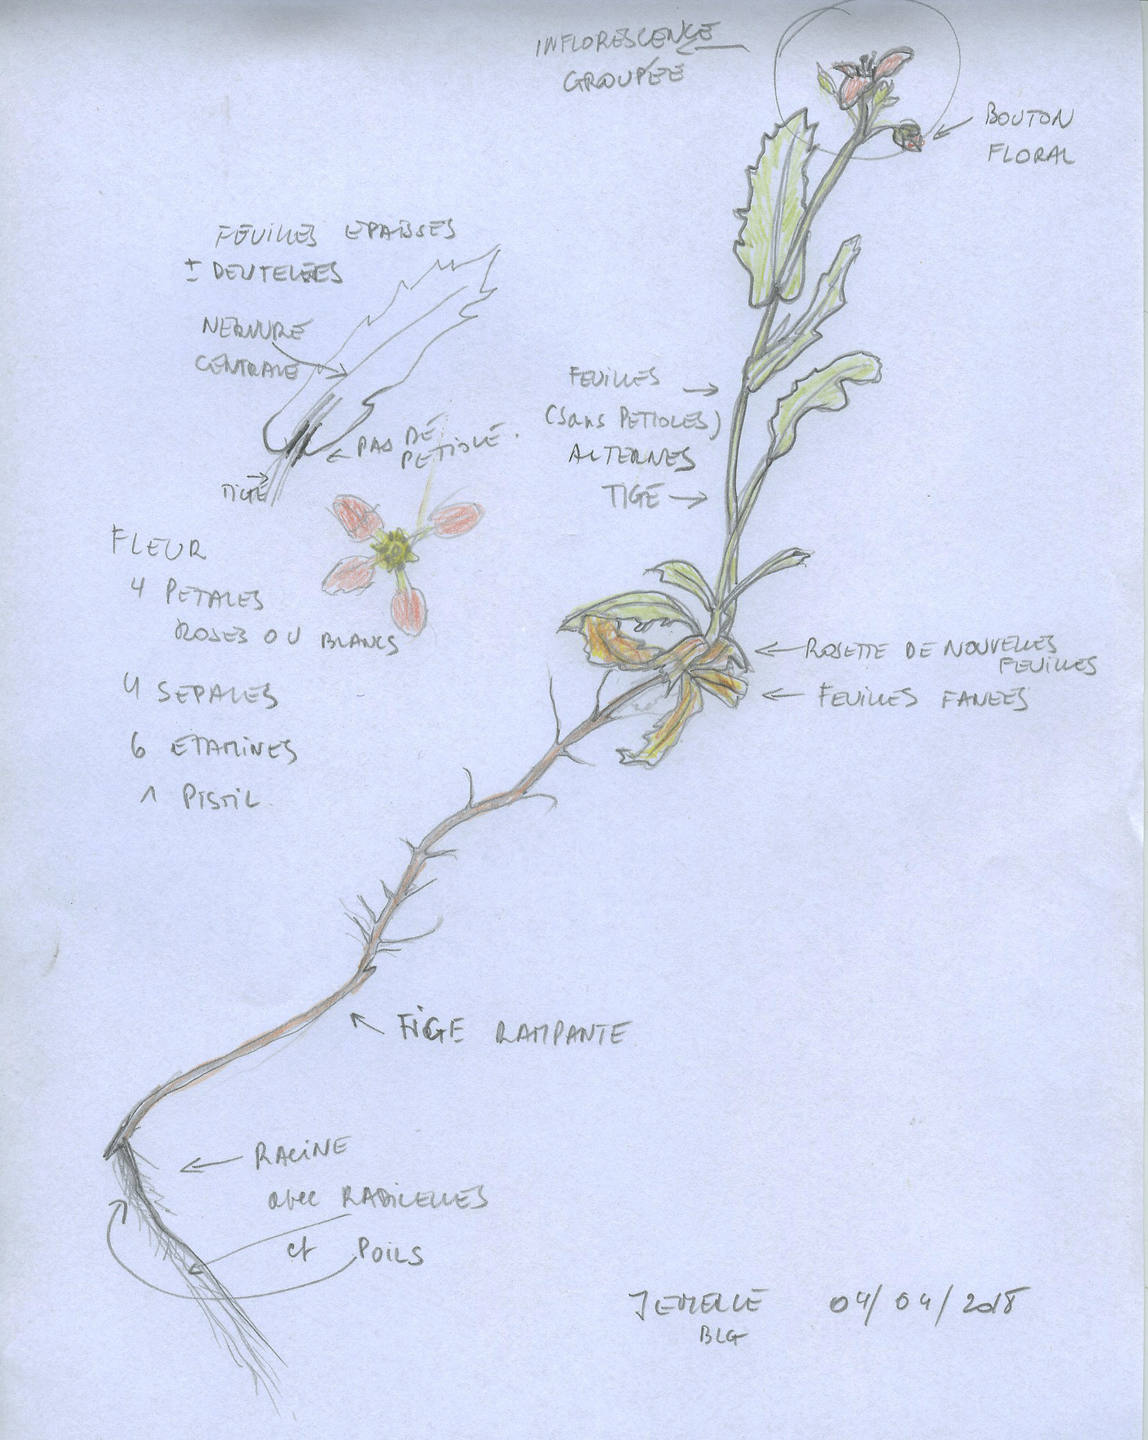 INFLORESCENCE
GROUPÉE
BOUTON
FLORAL
FEUILLES EPAISSES
± DENTELÉES
NERVURE
CENTRALE
PAS DE
PETIOLE.
TIGE
FEUILLES
(Sans PETIOLES)
ALTERNES
TIGE
FLEUR
4 PETALES
ROSES OU BLANCS
4 SEPALES
6 ETAMINES
1 PISTIL
ROSETTE DE NOUVELLES
FEUILLES
FEUILLES FANEES
TIGE RAMPANTE
RACINE
avec RADICELLES
et POILS
JEMELLE 04/04/2018
BLG